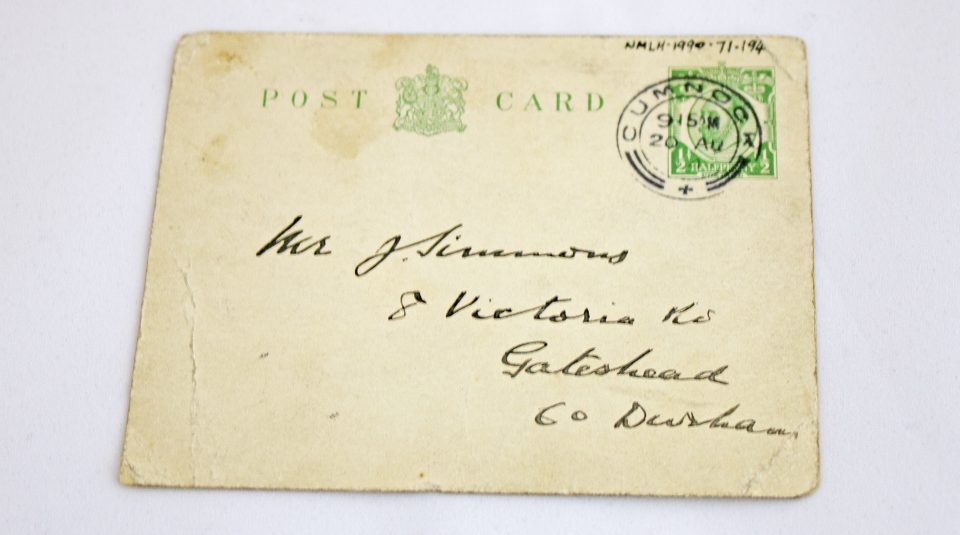 NMLH·1990·71·194
POST CARD
CUMNOCK
9·15 M
20 AU
+
½ HALFPENNY ½
Mr J. Simmons
8 Victoria Rd
Gateshead
Co Durham